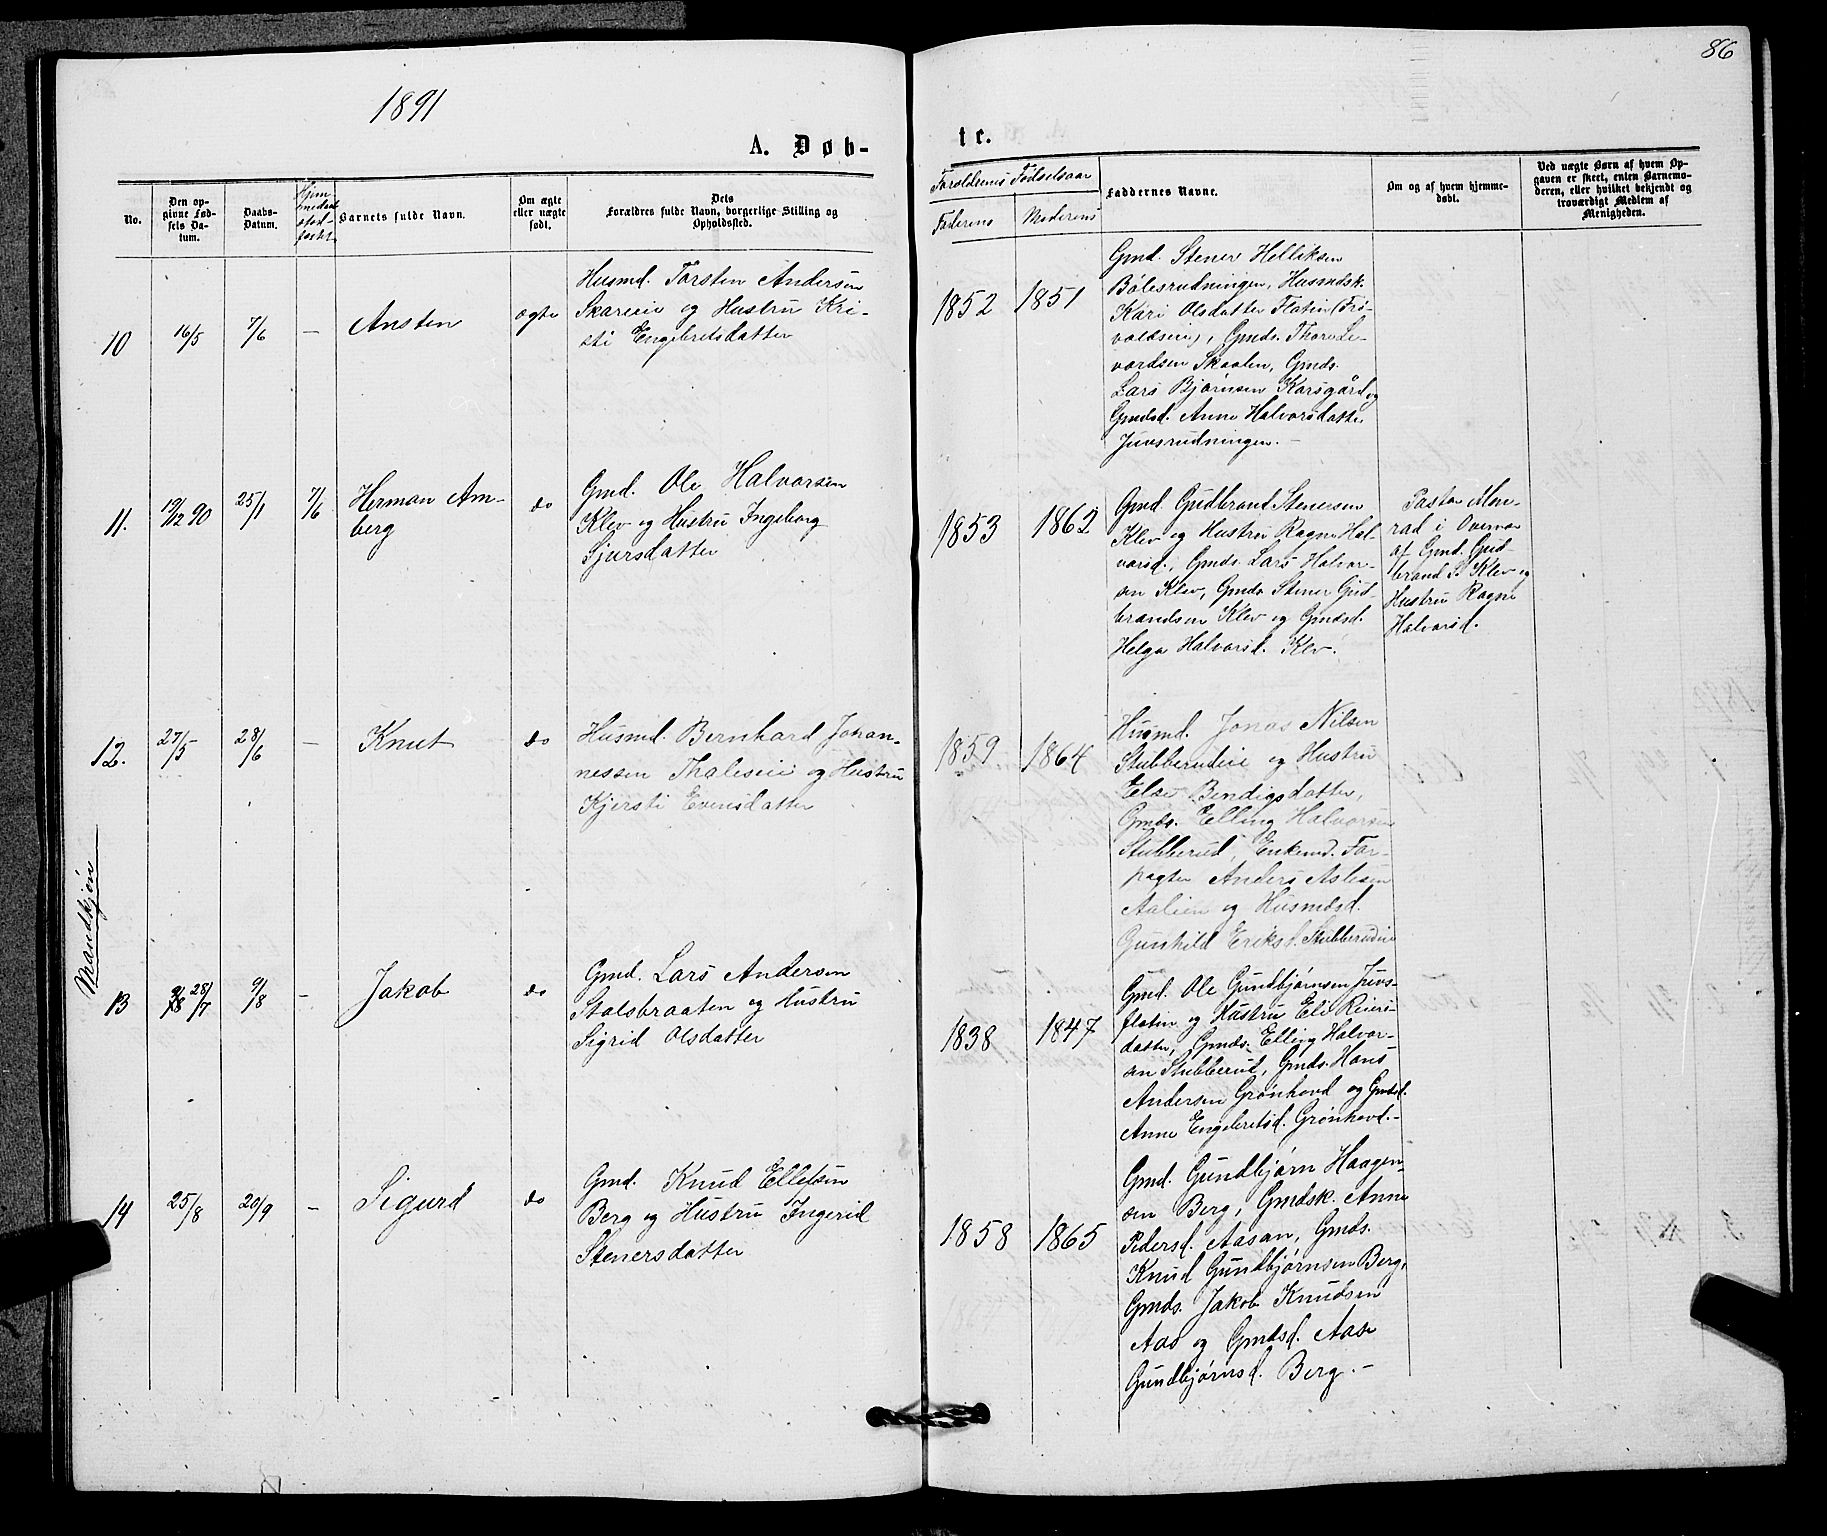 86
1891
A. Døb-
te.
No.
Den op-
givne Fød-
sels Da-
tum.
Daabs-
Datum.
Barnets fulde Navn.
Om ægte
eller uægte
født.
Dets
Forældres fulde Navn, borgerlige Stilling og
Opholdssted.
Forældrenes Fødselsaar
Faderens
Moderens
Faddernes Navne.
Om og af hvem hjemme-
døbt.
Ved uægte Børn af hvem Op-
gaven er skeet, enten Barnemo-
deren, eller hvilket bekjendt og
troværdigt Medlem af
Menigheden.
Mandkjøn
10
16/5
7/6
—
Ansten
ægte
Husmd. Torsten Andersen
Skareie og Hustru Kri-
sti Engebretsdatter
1852
1851
Gmd. Stener Helliksen
Bølesrudningen, Husmdsk.
Kari Olsdatter Flatin (Trø-
valdseie), Gmds. Thore Le-
vordsen Skaalen, Gmds.
Lars Bjørnsen Karsgård og
Gmdsd. Anne Halvorsdatter
Juvsrudningen. —
11.
19/12 90
25/1
7/6
Herman Am-
berg
do
Gmd. Ole Halvorsen
Klev og Hustru Ingeborg
Sjursdatter
1853
1862
Gmd. Gudbrand Stenersen
Klev og Hustru Ragne Hal-
vorsd., Gmds. Lars Halvor-
sen Klev, Gmds Stener Gud-
brandsen Klev og Gmdsd.
Helga Halvorsd. Klev.
Pastor Mon-
rad i Overvær
af Gmd. Gud-
brand S. Klev og
Hustru Ragne
Halvorsd.
12.
27/5
28/6
—
Knut
do
Husmd. Bernhard Johan-
nessen Thaleseie og Hustru
Kjersti Evensdatter
1859
1864
Husmd. Jonas Nilsen
Stubberudeie og Hustru
Else Bendigsdatter,
Gmds. Elling Halvorsen
Stubberud, Enkemd. For-
pagter Anders Aslesen
Aalien og Husmdsd.
Gunhild Eriksd. Stubberudeie
13
28/7
9/8
—
Jakob
do
Gmd. Lars Andersen
Stolsbraaten og Hustru
Sigrid Olsdatter
1838
1847
Gmd. Ole Gundbjørnsen Juvs-
flatin og Hustru Eli Reiers-
datter, Gmds. Elling Halvor-
sen Stubberud, Gmds. Hans
Andersen Grønhovd og Gmdsd.
Anne Engebretsd. Grønhovd. —
14
25/8
20/9
—
Sigurd
do
Gmd. Knud Ellefsen
Berg og Hustru Ingerid
Stenersdatter
1858
1865
Gmd. Gundbjørn Haagen-
sen Berg, Gmdsk. Anne
Pedersd. Aasan, Gmds.
Knud Gundbjørnsen Berg,
Gmds. Jakob Knudsen
Aas og Gmdsd. Aase
Gundbjørnsd. Berg. —